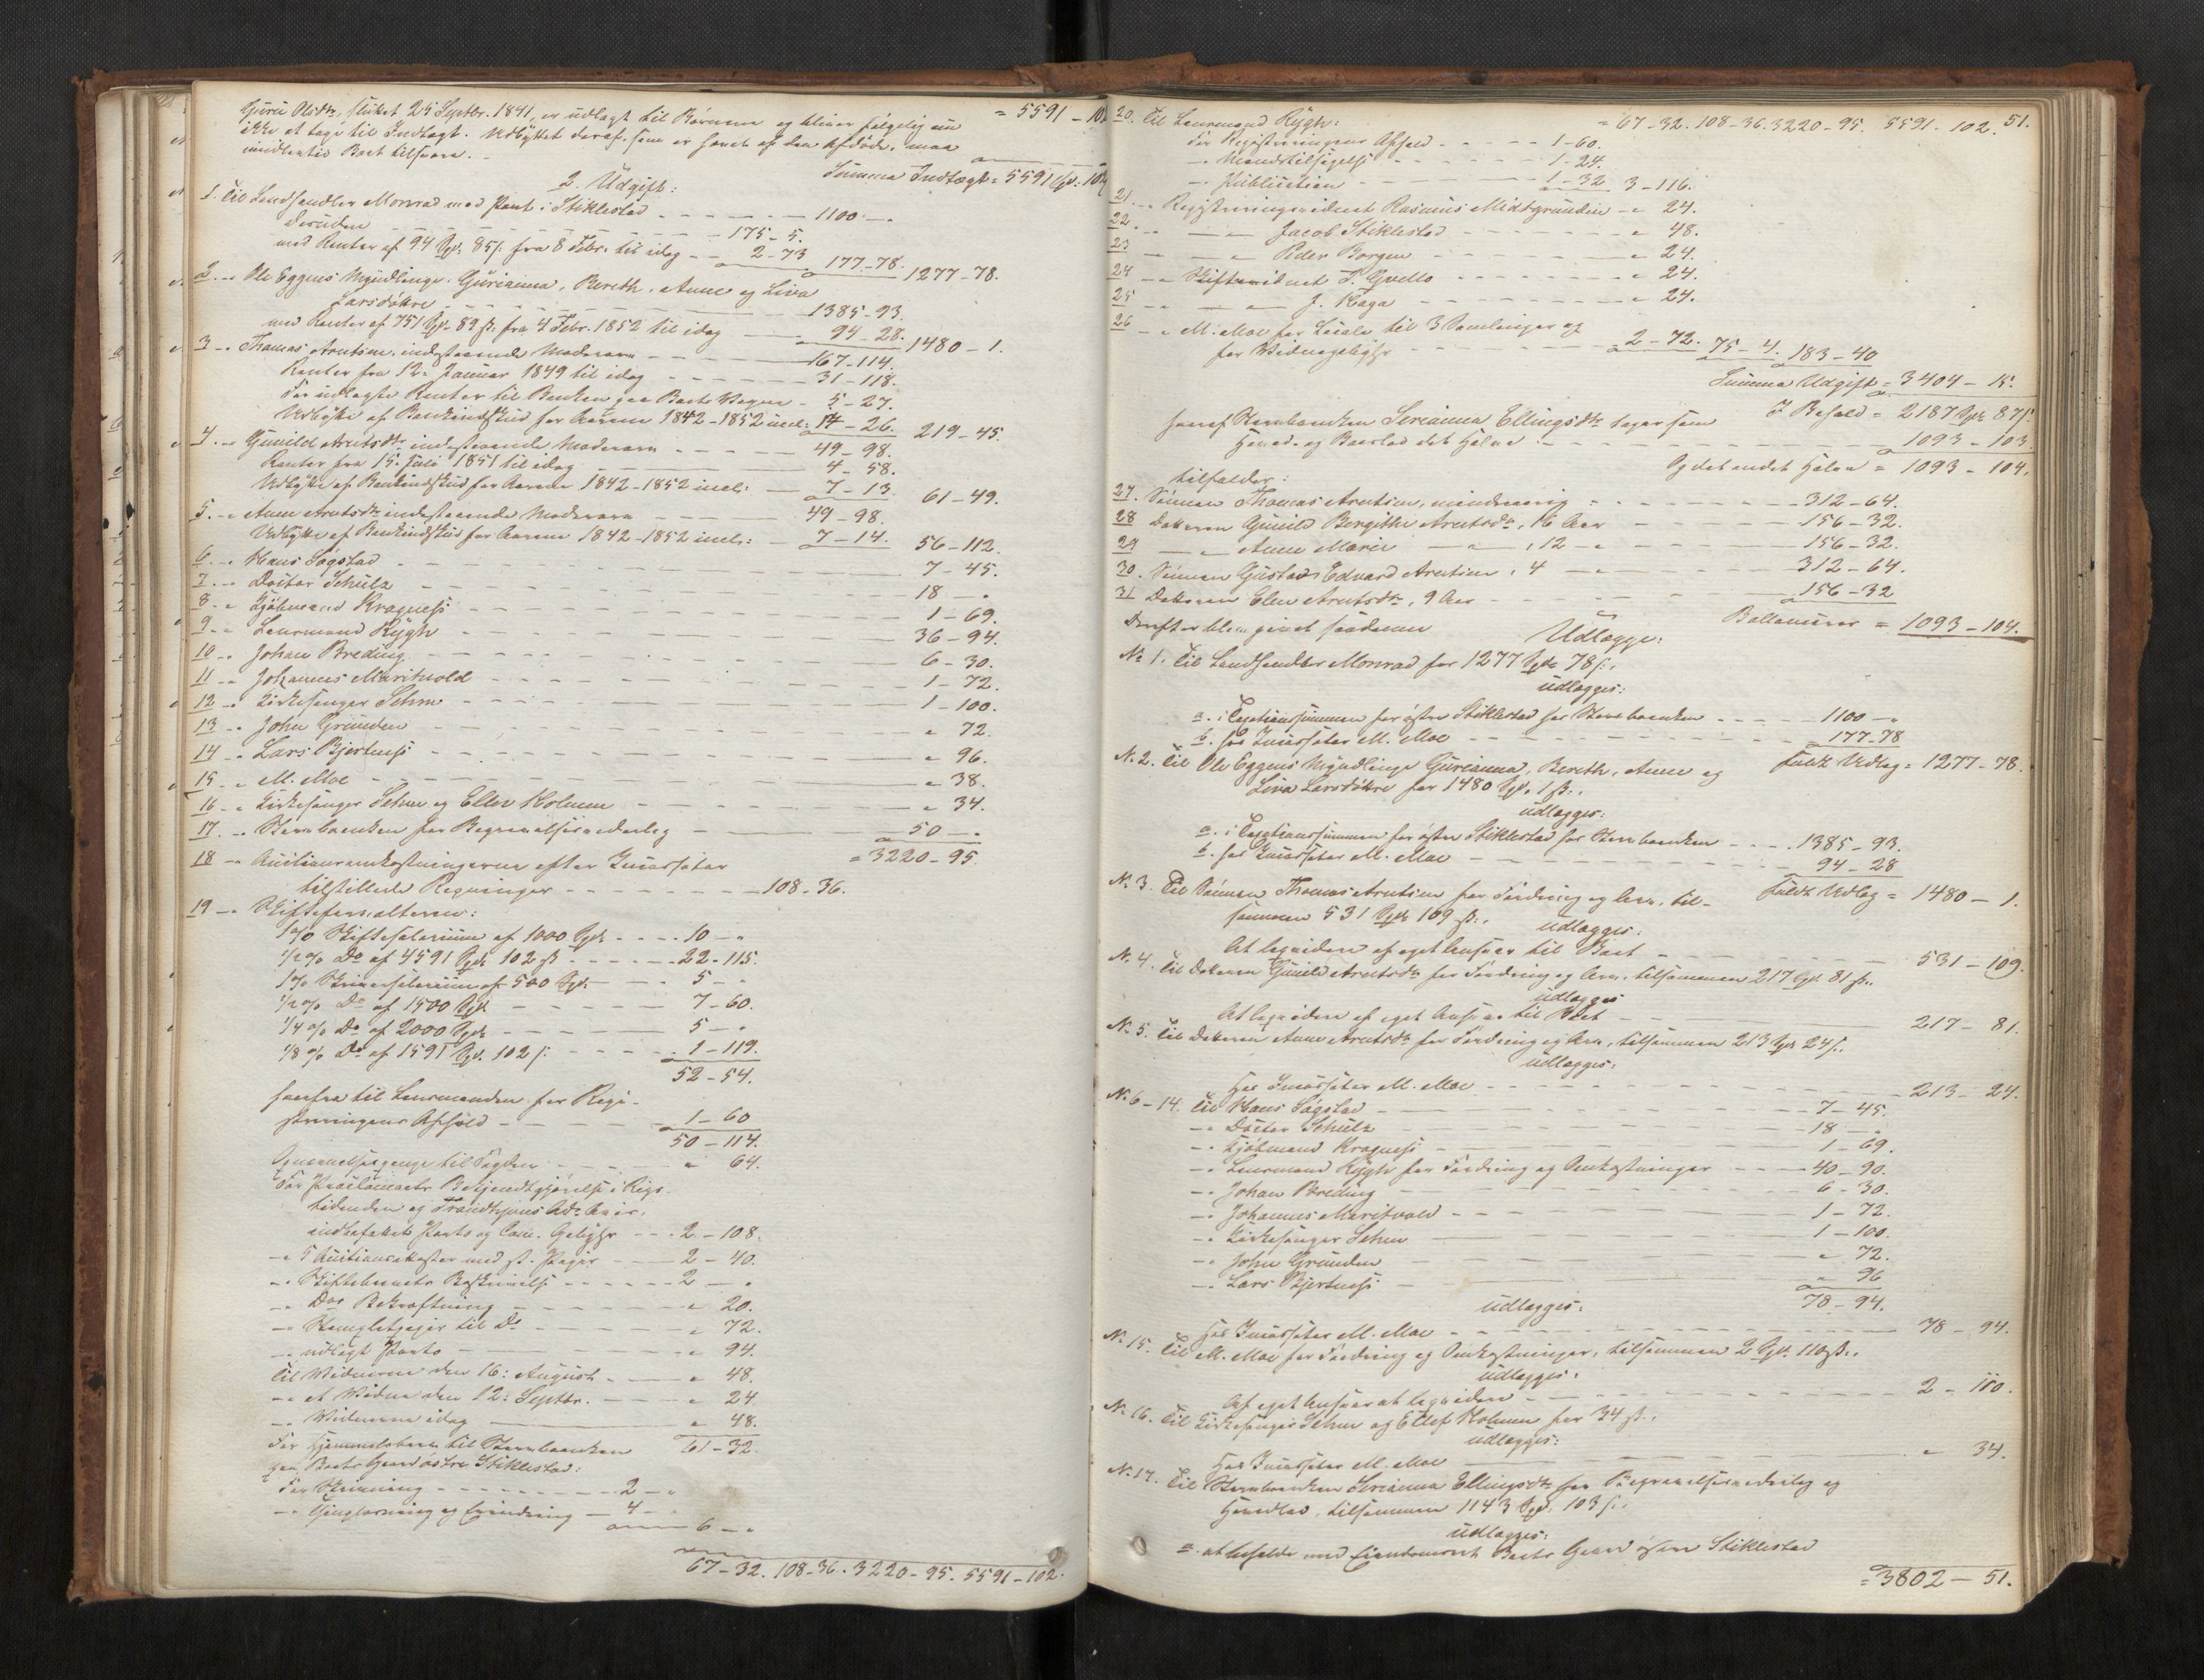 Guru Olsdtr, skiftet 25 Septbr. 1841, er udlagt til Børnene og bliver følgelig nu = 5591 - 102
ikke at tage til Indtægt. Udbyttet deraf, som er hævet af den Afdøde, maa
imidlertid Boet tilsvare. -
Summa Indtægt = 5591 Spd: 102
2. Udgift:
1. Til Landhandler Monrad med Pant i Stiklestad - - - - 1100 - "
desuden - - - - 175 - 5.
med Renter af 94 Spd: 85 s: fra 8 Febr. til idag - - 2 - 73 177 - 78. 1277 - 78.
2 - " Ole Eggens Myndlinge. Gurianna, Bereth, Anne og Liva
Larsdøttre - - - - 1385 - 93.
med Renter af 751 Spd. 89 s: fra 4 Febr. 1852 til idag - - 94 - 28. 1480 - 1.
3 - " Thomas Arntsen, indestaaende Mødrearv - - - 167 - 114.
Renter fra 12. Januar 1849 til idag - - - 31 - 118.
For udlagte Renter til Banken paa Boets Vegne - 5 - 27.
Udbytte af Bankindskud for Aarene 1842 - 1852 incl: 14 - 26. 219 - 45.
4. - " Gunild Arntsdtr indestaaende Mødrearv - - - 49 - 98.
Renter fra 15. Juli 1851 til idag - - - 4 - 58.
Udbytte af Bankindskud for Aarene 1842 - 1852 incl: - 7 - 13. 61 - 49.
5. - " Anne Arntsdtr indestaaende Mødrearv - - - 49 - 98.
Udbytte af Bankindskud for Aarene 1842 - 1852 incl: - 7 - 14. 56 - 112.
6 - " Hans Søgstad - - - 7 - 45.
7 - " Doctor Schulz - - - 18 - "
8 - " Kjøbmand Kragness - - - 1 - 69.
9 - " Lensmand Rygh - - - 36 - 94.
10 - " Johan Breding - - - 6 - 30.
11 - " Johannes Maritvold - - - 1 - 72.
12 - " Kirkesanger Sehm - - - 1 - 100.
13 - " John Grunden - - - " 72.
14 - " Lars Bjertness - - - " 96.
15 - " M. Moe - - - " 38.
16 - " Kirkesanger Sehm og Ellev Holmen - - - " 34.
17. - " Stervboenken for Begravelsesvederlag - - 50 - "
= 3220 - 95
18 - " Auctionsomkostningerne efter Incassator
tilstillede Regninger - - - 108 - 36.
19 - " Skifteforvalteren:
1 % Skiftesalarium af 1000 Spd - - - 10 - "
1/2 % Do af 4591 Spd 102 s - - - 22 - 115.
1 % Skriversalarium af 500 Spd - - - 5 - "
1/2 % Do af 1500 Spd - - - 7 - 60.
1/4 % Do af 2000 Spd - - - 5 - "
1/8 % Do af 1591 Spd. 102 s: - - - 1 - 119.
52 - 54.
herfra til Lensmanden for Regi-
streringens Afhold - - - 1 - 60
50 - 114.
Opnævnelsespenge til Fogden - - - " 64.
For Proclamaets Bekjendtgjørelse i Rigs-
tidenden og Trondhjems Ads. Avis,
indbefattet Porto og Com. Gebyhr - - 2 - 108.
- " 5 Auctionsplakater med st. Papir - - 2 - 40.
- " Skiftebrevets Beskrivelse - - - 2 - "
- " Dos Bekræftning - - - " 20.
- " Stempletpapir til Do - - - " 72.
- " udlagt Porto - - - " 94.
Til Vidnerne den 16: August - - - " 48.
- " et Vidne den 12: Septbr. - - - " 24
- " Vidnerne idag - - - " 48.
For Hjemmelsbrev til Stervboenken 61 - 32.
paa Boets Gaard østre Stiklestad:
For Skrivning - - - 2 - "
- " Thinglæsning og Extradering - 4 - "
6 - "
67 - 32. 108 - 36. 3220 - 95. 5591 - 102.
51.
20. Til Lensmand Rygh: = 67 - 32. 108 - 36. 3220 - 95. 5591. 102.
For Registreringens Afhold - - - 1 - 60.
- " Mandstilsigelse - - - 1 - 24.
- " Publication - - - 1 - 32 3 - 116.
21. - " Registreringsvidnet Rasmus Midtgrunden - " 24.
22. - " Jacob Stiklestad - - - " 48.
23 - " Peder Borgen - - - " 24.
24 - " Skiftevidnet P. Qvello - - - " 24.
25 - " J. Haga - - - " 24.
26 - " M. Moe for Locale til 3 Samlinger og
for Vidnegebyhr - - - 2 - 72. 75 - 4. 183 - 40
Summa Udgift = 3404 - 15.
I Behold = 2187 Spd 87 s:
heraf Stervboenken Serianna Ellingsdtr tager som
Hoved- og Boeslod det Halve - - - 1093 - 103
Og det andet Halve = 1093 - 104.
tilfalder:
27. Sønnen Thomas Arntsen, mindreaarig - - - 312 - 64.
28 Datteren Gunild Bergithe Arntsdtr, 16 Aar - - - 156 - 32.
29 - " - Anne Marie - " -, 12 - " - - 156 - 32.
30. Sønnen Gustav Edvard Arntsen, 4 - " - - 312 - 64.
31 Datteren Elen Arntsdtr, 9 Aar - - - 156 - 32
Ballancerer = 1093 - 104.
Derefter blev givet saadanne
Udlægge:
No 1. Til Landhandler Monrad for 1277 Spd 78 s:,
udlægges:
a. i Taxationssummen for østre Stiklestad hos Stervboenken - - - 1100 - "
b. hos Incassator M. Moe - - - 177 - 78
Fuldt Udlæg = 1277 - 78.
No 2. Til Ole Eggens Myndlinge Gurianna, Bereth, Anne og
Liva Larsdøttre for 1480 Spd. 1 s:,
udlægges:
a. i Taxationssummen for østre Stiklestad hos Stervboenken - - - 1385 - 93.
b. hos Incassator M. Moe - - - 94 - 28
Fuldt Udlæg = 1480 - 1.
No 3. Til Sønnen Thomas Arntsen for Fordring og Arv, til-
sammen 531 Spd 109 s:,
udlægges:
At liqvidere af eget Ansvar til Boet - - - 531 - 109.
No 4. Til Datteren Gunild Arntsdtr for Fordring og Arv, tilsammen 217 Spd. 81 s:,
udlægges
At liqvidere af eget Ansvar til Boet - - - 217 - 81.
No 5. Til Datteren Anne Arntsdtr for Fordring og Arv, tilsammen 213 Spd 24 s:,
udlægges:
Hos Incassator M. Moe - - - 213 - 24.
No 6 - 14. Til Hans Søgstad - - - 7 - 45.
- " Doctor Schulz - - - 18 - "
- " Kjøbmand Kragness - - - 1 - 69.
- " Lensmand Rygh for Fordring og Omkostninger - - - 40 - 90.
- " Johan Breding - - - 6 - 30.
- " Johannes Maritvold - - - 1 - 72.
- " Kirkesanger Sehm - - - 1 - 100.
- " John Grunden - - - " 72.
- " Lars Bjertness - - - " 96
78 - 94.
udlægges:
Hos Incassator M. Moe - - - 78 - 94.
No 15. Til M. Moe for Fordring og Omkostninger, tilsammen 2 Spd. 110 s:,
udlægges:
Af eget Ansvar at liqvidere - - - 2 - 110.
No 16. Til Kirkesanger Sehm og Ellef Holmen for 34 s:,
udlægges:
Hos Incassator M. Moe - - - " 34.
No 17. Til Stervboenken Serianna Ellingsdtr for Begravelsesvederlag og
Hovedlod, tilsammen 1143 Spd. 103 s:,
udlægges:
a. at beholde med Eiendomsret Boets Gaard østre Stiklestad
= 3802 - 51.